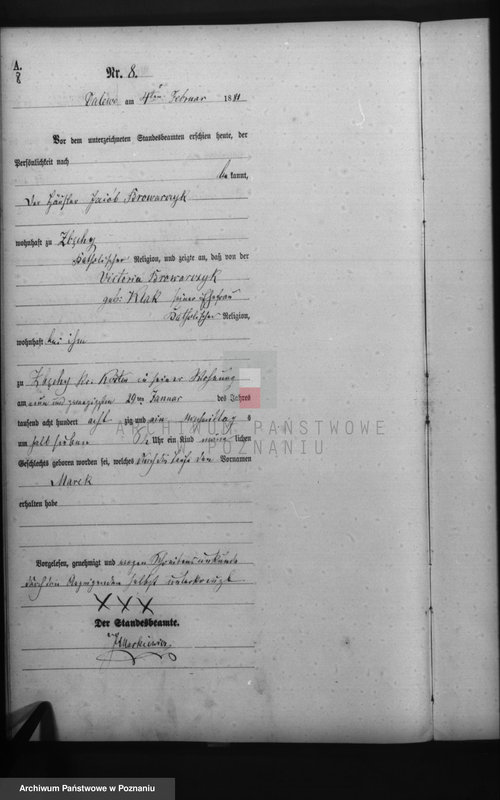 A.
8
Nr. 8.
Dalewo am 4ten Februar 1881
Vor dem unterzeichneten Standesbeamten erschien heute, der
Persönlichkeit nach
be kannt,
der Häusler Jacob Browarczyk
wohnhaft zu Zbęchy
katholischer Religion, und zeigte an, daß von der
Victoria Browarczyk
geb: Klak seiner Ehefrau
katholischer Religion,
wohnhaft bei ihm
zu Zbęchy Kr. Kosten in seiner Wohnung
am neun und zwanzigsten 29ten Januar des Jahres
tausend acht hundert acht zig und ein Nachmittag s
um halb sieben Uhr ein Kind männ lichen
Geschlechts geboren worden sei, welches durch die Taufe den Vornamen
Marek
erhalten habe
Vorgelesen, genehmigt und wegen Schreibensunkunde
durch den Anzeigenden selbst unterkreuzt
XXX
Der Standesbeamte.
Markiewicz.
ARCHIWUM PAŃSTWOWE
W POZNANIU
Archiwum Państwowe w Poznaniu